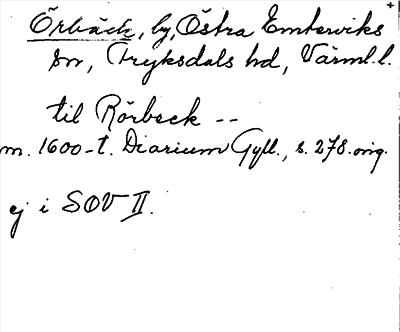 Örbäck, by, Östra Emterviks
sn, Fryksdals hd, Värml. l.
til Rörbeck --
m. 1600-t. Diarium Gyll., s. 278. orig.
ej i SOV II.